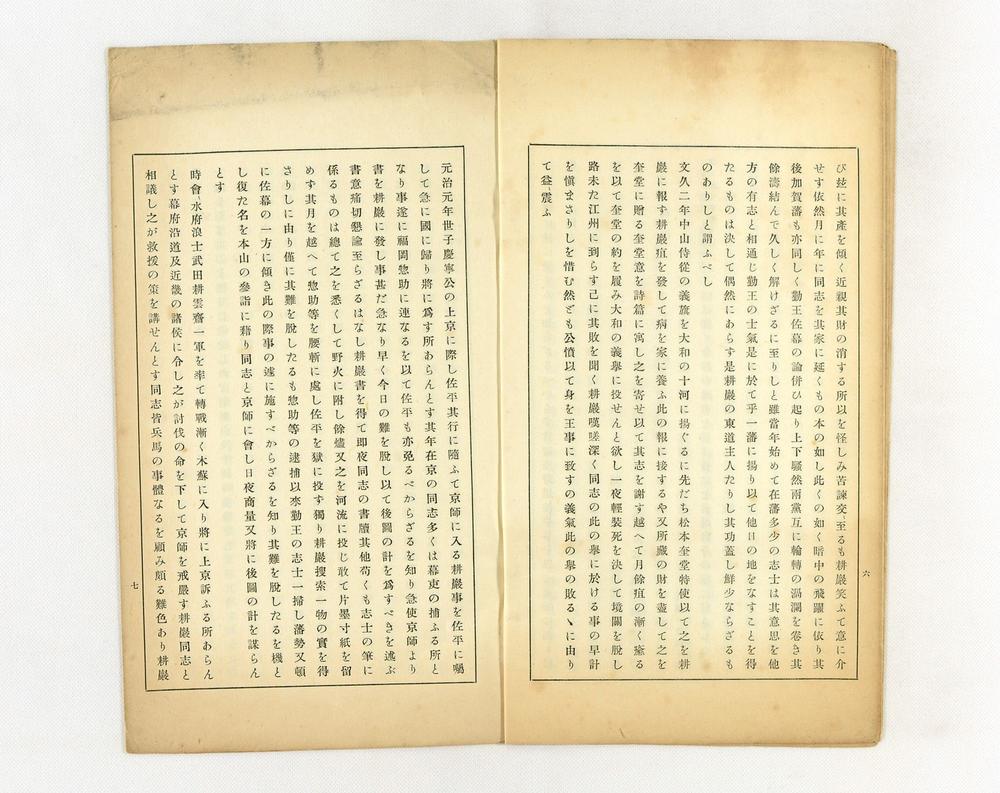 び玆に其產を傾く近親其財の消する所以を怪しみ苦諫交〻至るも耕巖笑ふて意に介
せす依然月に年に同志を其家に延くもの本の如し此くの如く暗中の飛躍に依り其
後加賀藩も亦同しく勤王佐幕の論併ひ起り上下騷然兩黨互に輪轉の渦瀾を卷き其
餘濤結んで久しく解けざるに至りしと雖當年始めて在藩多少の志士は其意思を他
方の有志と相通じ勤王の士氣是に於て乎一藩に揚り以て他日の地をなすことを得
たるものは決して偶然にあらす是耕巖の東道主人たりし其功蓋し鮮少ならざるも
のありしと謂ふべし
文久二年中山侍從の義旗を大和の十河に揚ぐるに先だち松本奎堂特使以て之を耕
巖に報す耕巖疽を發して病を家に養ふ此の報に接するや又所藏の財を盡して之を
奎堂に贈る奎堂意を詩篇に寓し之を寄せ以て其志を謝す越へて月餘疽の漸く癒る
を以て奎堂の約を履み大和の義擧に投せんと欲し一夜輕裝死を決して境關を脫し
路未た江州に到らす已に其敗を聞く耕巖嘆嗟深く同志の此の擧に於ける事の早計
を愼まさりしを惜む然ども公憤以て身を王事に致すの義氣此の擧の敗るゝに由り
て益〻震ふ
六
元治元年世子慶寧公の上京に際し佐平其行に隨ふて京師に入る耕巖事を佐平に囑
して急に國に歸り將に爲す所あらんとす其年在京の同志多くは幕吏の捕ふる所と
なり事遂に福岡惣助に連なるを以て佐平も亦免るべからざるを知り急使京師より
書を耕巖に發し事甚だ急なり早く今日の難を脫し以て後圖の計を爲すべきを述ぶ
書意痛切懇諭至らざるはなし耕巖書を得て即夜同志の書牘其他苟くも志士の筆に
係るものは總て之を悉くして野火に附し餘燼又之を河流に投じ敢て片墨寸紙を留
めす其月を越へて惣助等を腰斬に處し佐平を獄に投す獨り耕巖搜索一物の實を得
さりしに由り僅に其難を脫したるも惣助等の逮捕以來勤王の志士一掃し藩勢又頓
に佐幕の一方に傾き此の際事の遽に施すべからざるを知り其難を脫したるを機と
し復た名を本山の參詣に藉り同志と京師に會し日夜商量又將に後圖の計を謀らん
とす
時會〻水府浪士武田耕雲齋一軍を率て轉戰漸く木蘇に入り將に上京訴ふる所あらん
とす幕府沿道及近畿の諸侯に令し之が討伐の命を下して京師を戒嚴す耕巖同志と
相議し之が救援の策を講せんとす同志皆兵馬の事體なるを顧み頗る難色あり耕巖
七